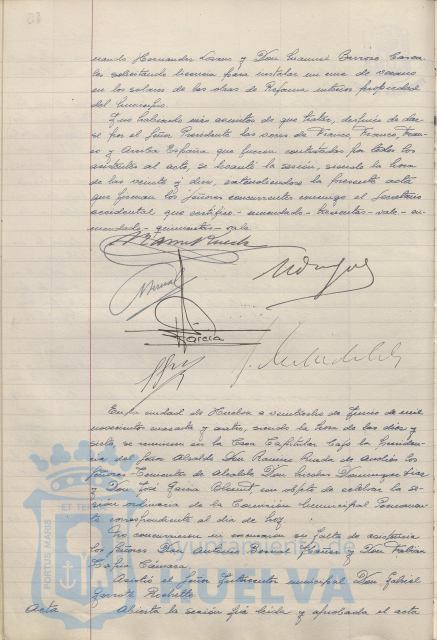 nando Hernandez Lozano y Don Manuel Barroso Canca-
les solicitando licencia para instalar un cine de verano
en los solares de las obras de Reforma interior propiedad
del Municipio.
Y no habiendo más asuntos de que tratar, después de dar-
se por el Señor Presidente las voces de Franco, Franco, Fran-
co y Arriba España que fueron contestadas por todos los
asistentes al acto, se levantó la sesión, siendo la hora
de las veinte y diez, extendiéndose la presente acta
que firman los Señores concurrentes conmigo el Secretario
accidental, que certifico = enmendado = = vale = en-
mendado = = vale
Bernal
García
En la ciudad de Huelva a veintiocho de Junio de mil
novecientos cuarenta y cuatro, siendo la hora de las diez y
siete, se reunieron en la Casa Capitular, bajo la Presiden-
cia del Señor Alcalde Don Ramiro los
Señores Tenientes de Alcalde Don Nicolas Dominguez
y Don José Garcia con objeto de celebrar la se-
sión ordinaria de la Comisión Municipal Permanen-
te correspondiente al dia de hoy.
No concurrieron ni excusaron su falta de asistencia
los Señores Don Antonio Bernal y Don Fabian
Tapia Cámara.
Asistió el Señor Interventor municipal Don Gabriel
Acta Abierta la sesión fué leida y aprobada el acta
PORTUS MARIS
ET TERR
Ayuntamiento de
HUELVA